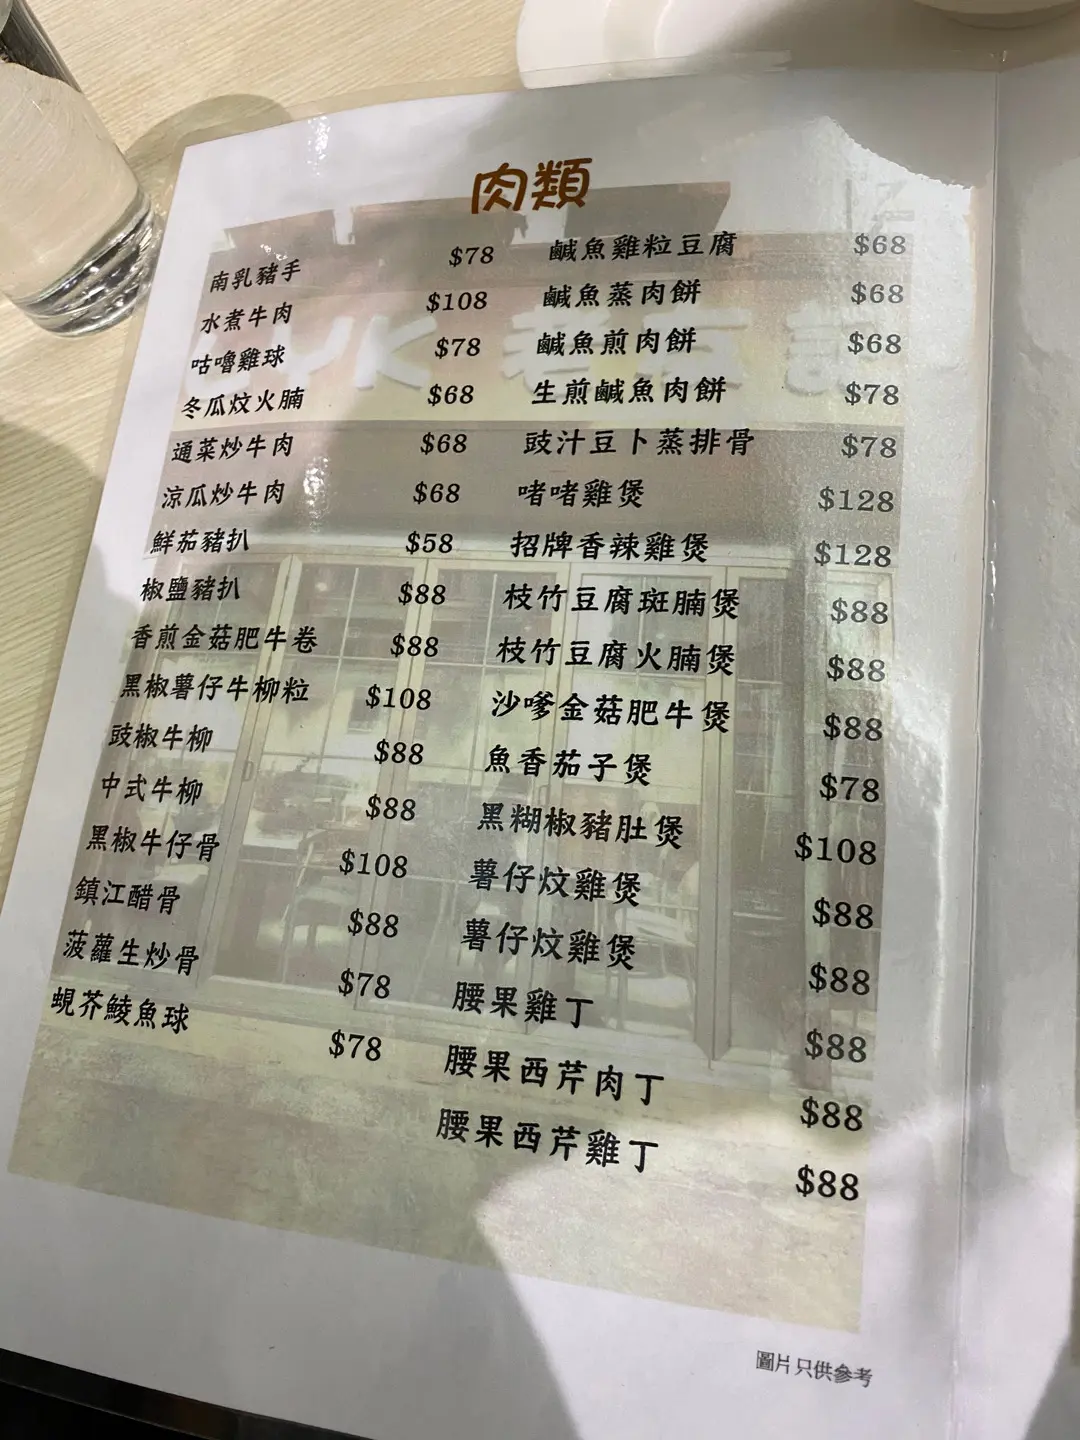 肉類
南乳豬手 $78
水煮牛肉 $108
咕嚕雞球 $78
冬瓜炆火腩 $68
通菜炒牛肉 $68
涼瓜炒牛肉 $68
鮮茄豬扒 $58
椒鹽豬扒 $88
香煎金菇肥牛卷 $88
黑椒薯仔牛柳粒 $108
豉椒牛柳 $88
中式牛柳 $88
黑椒牛仔骨 $108
鎮江醋骨 $88
菠蘿生炒骨 $78
蜆芥鯪魚球 $78
鹹魚雞粒豆腐 $68
鹹魚蒸肉餅 $68
鹹魚煎肉餅 $68
生煎鹹魚肉餅 $78
豉汁豆卜蒸排骨 $78
啫啫雞煲 $128
招牌香辣雞煲 $128
枝竹豆腐斑腩煲 $88
枝竹豆腐火腩煲 $88
沙嗲金菇肥牛煲 $88
魚香茄子煲 $78
黑糊椒豬肚煲 $108
薯仔炆雞煲 $88
薯仔炆雞煲 $88
腰果雞丁 $88
腰果西芹肉丁 $88
腰果西芹雞丁 $88
圖片只供參考